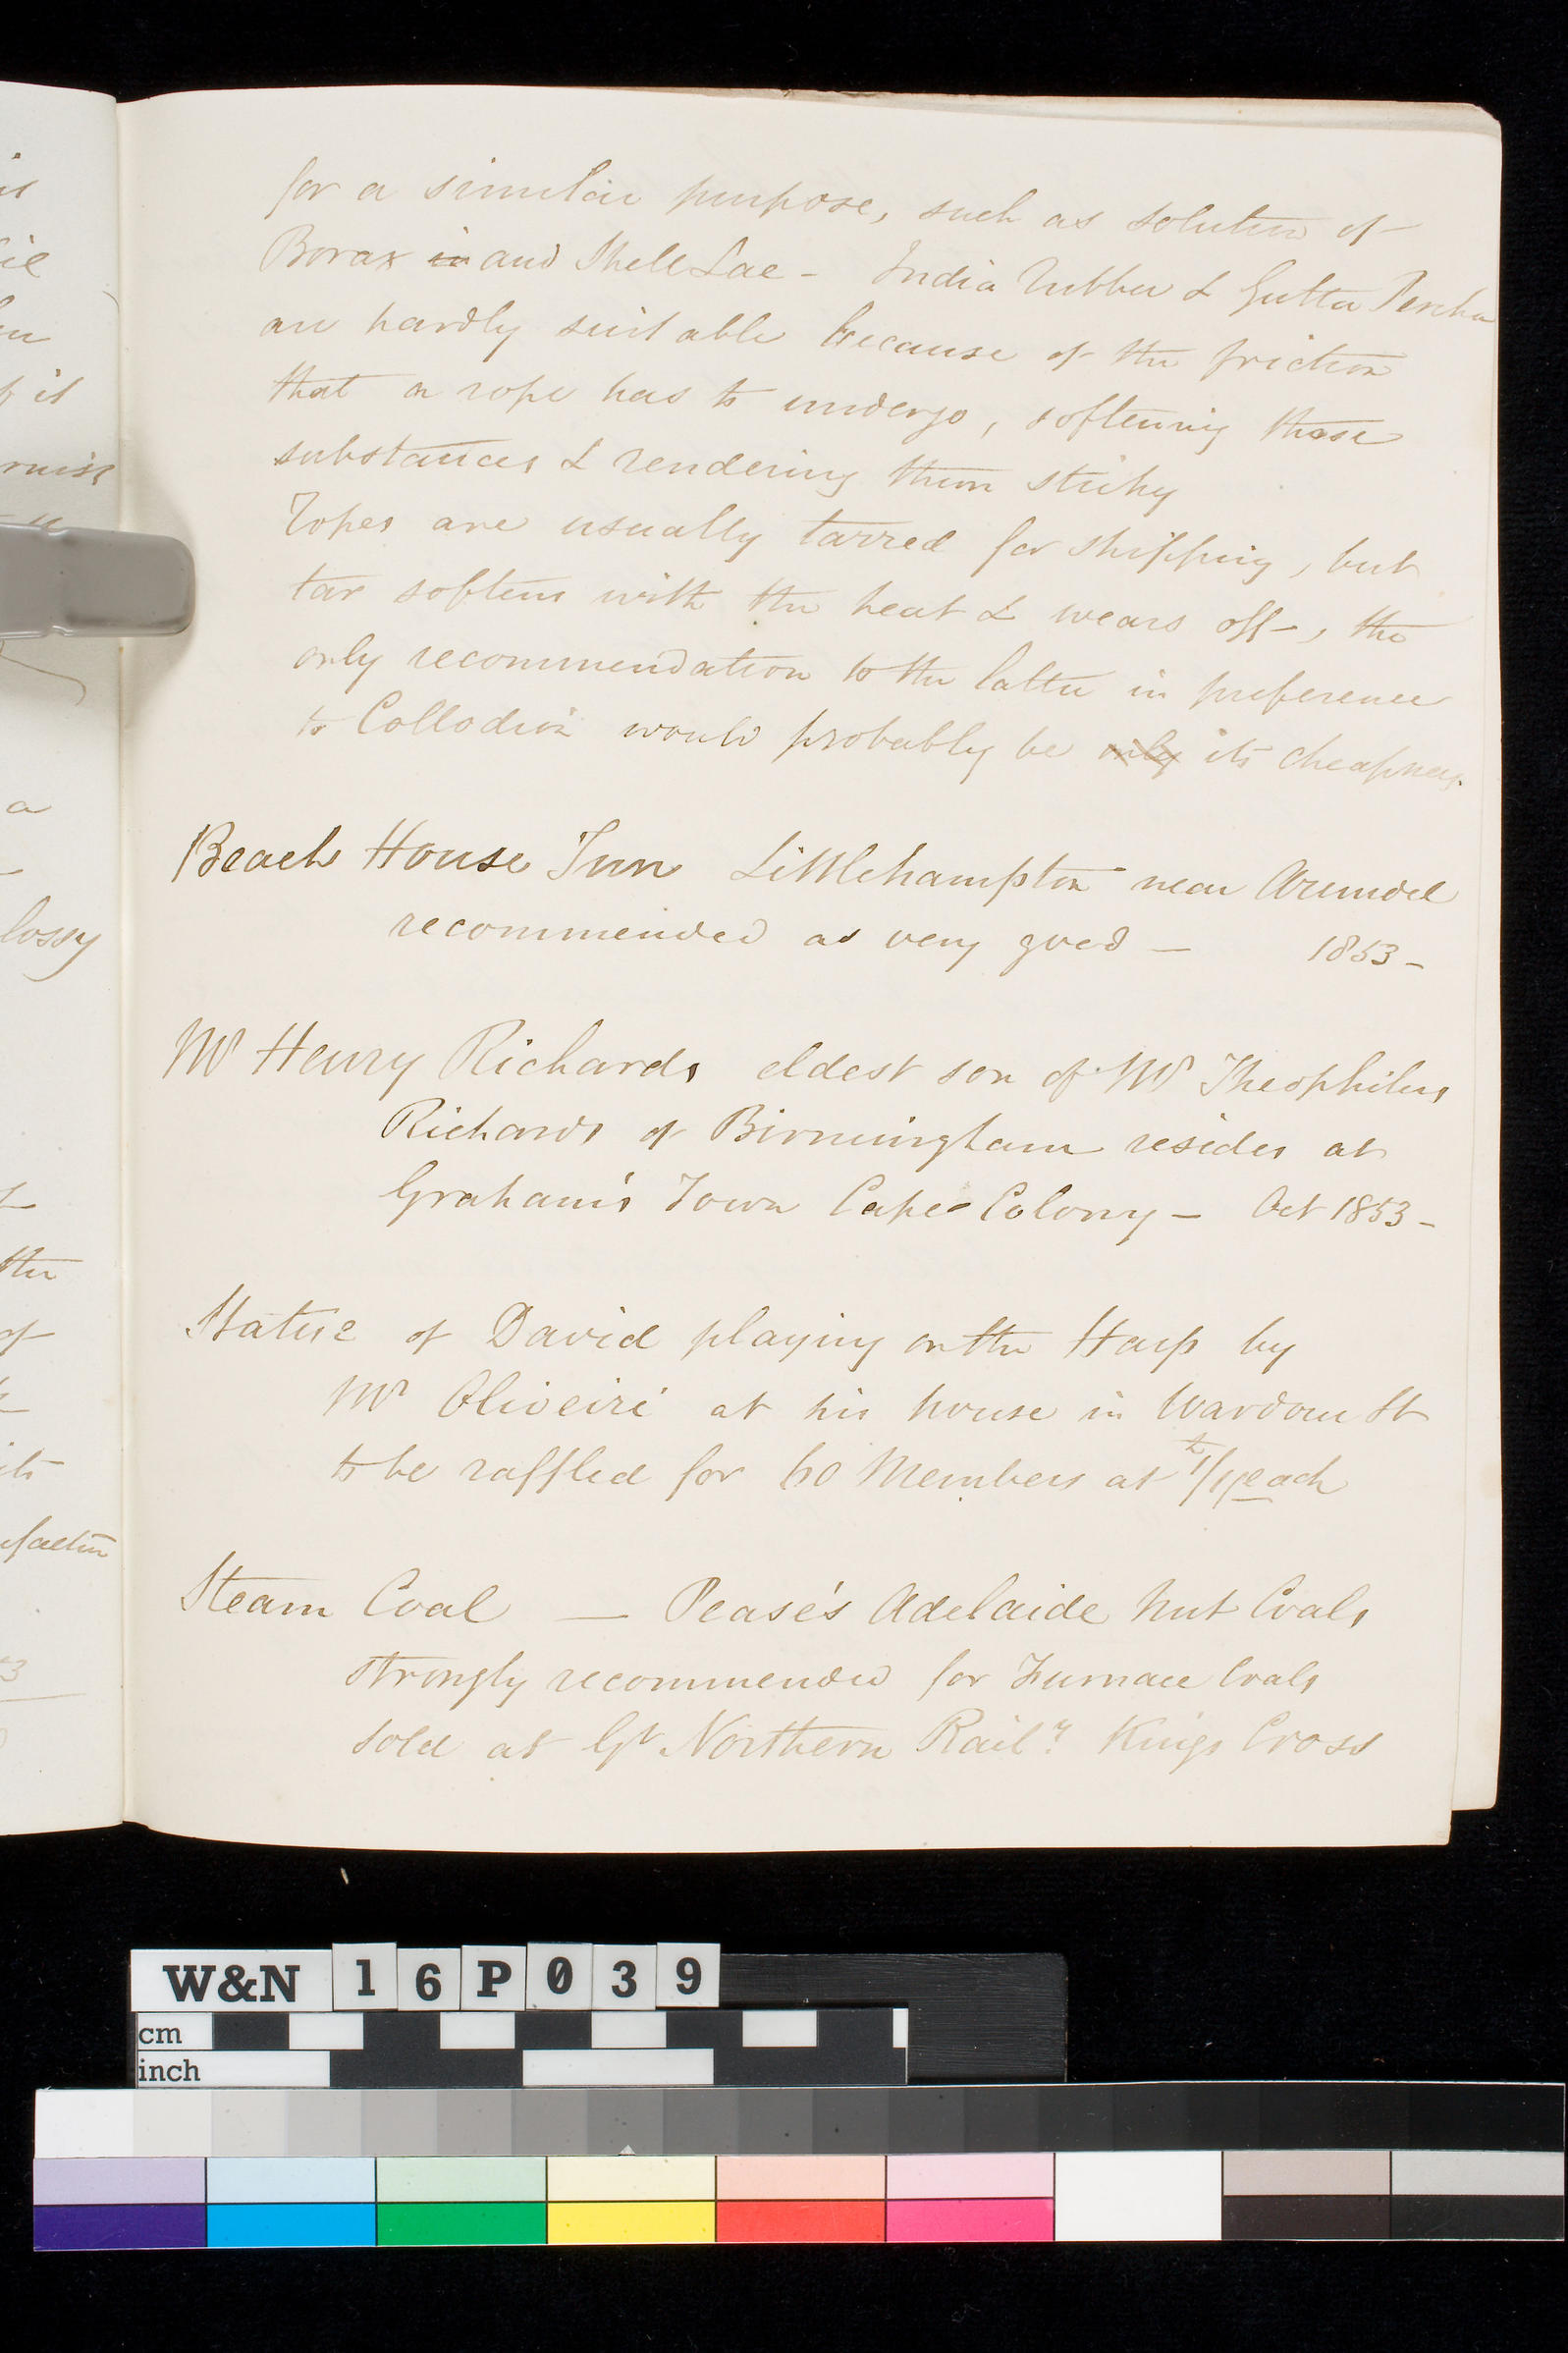 for a similar purpose, such as solution of
Borax in and Shell Lac - India rubber & Gutta Percha
are hardly suitable because of the friction
that a rope has to undergo, softening these
substances & rendering them sticky
Ropes are usually tarred for shipping, but
tar softens with the heat & wears off, the
only recommendation to the latter in preference
to Collodion would probably be only its cheapness.
Beach House Inn Littlehampton near Arundel
recommended as very good - 1853 -
Mr Henry Richards eldest son of Mr Theophilus
Richards of Birmingham resides at
Graham's Town Cape Colony - Oct 1853 -
Statue of David playing on the Harp by
Mr Oliveiri at his house in Wardour St
to be raffled for 60 Members at £1/1/ each
Steam Coal — Pease's Adelaide Nut Coals
strongly recommended for Furnace Coals
sold at Gt Northern Raily Kings Cross
lossy
the
of
W&N 16P039
cm
inch